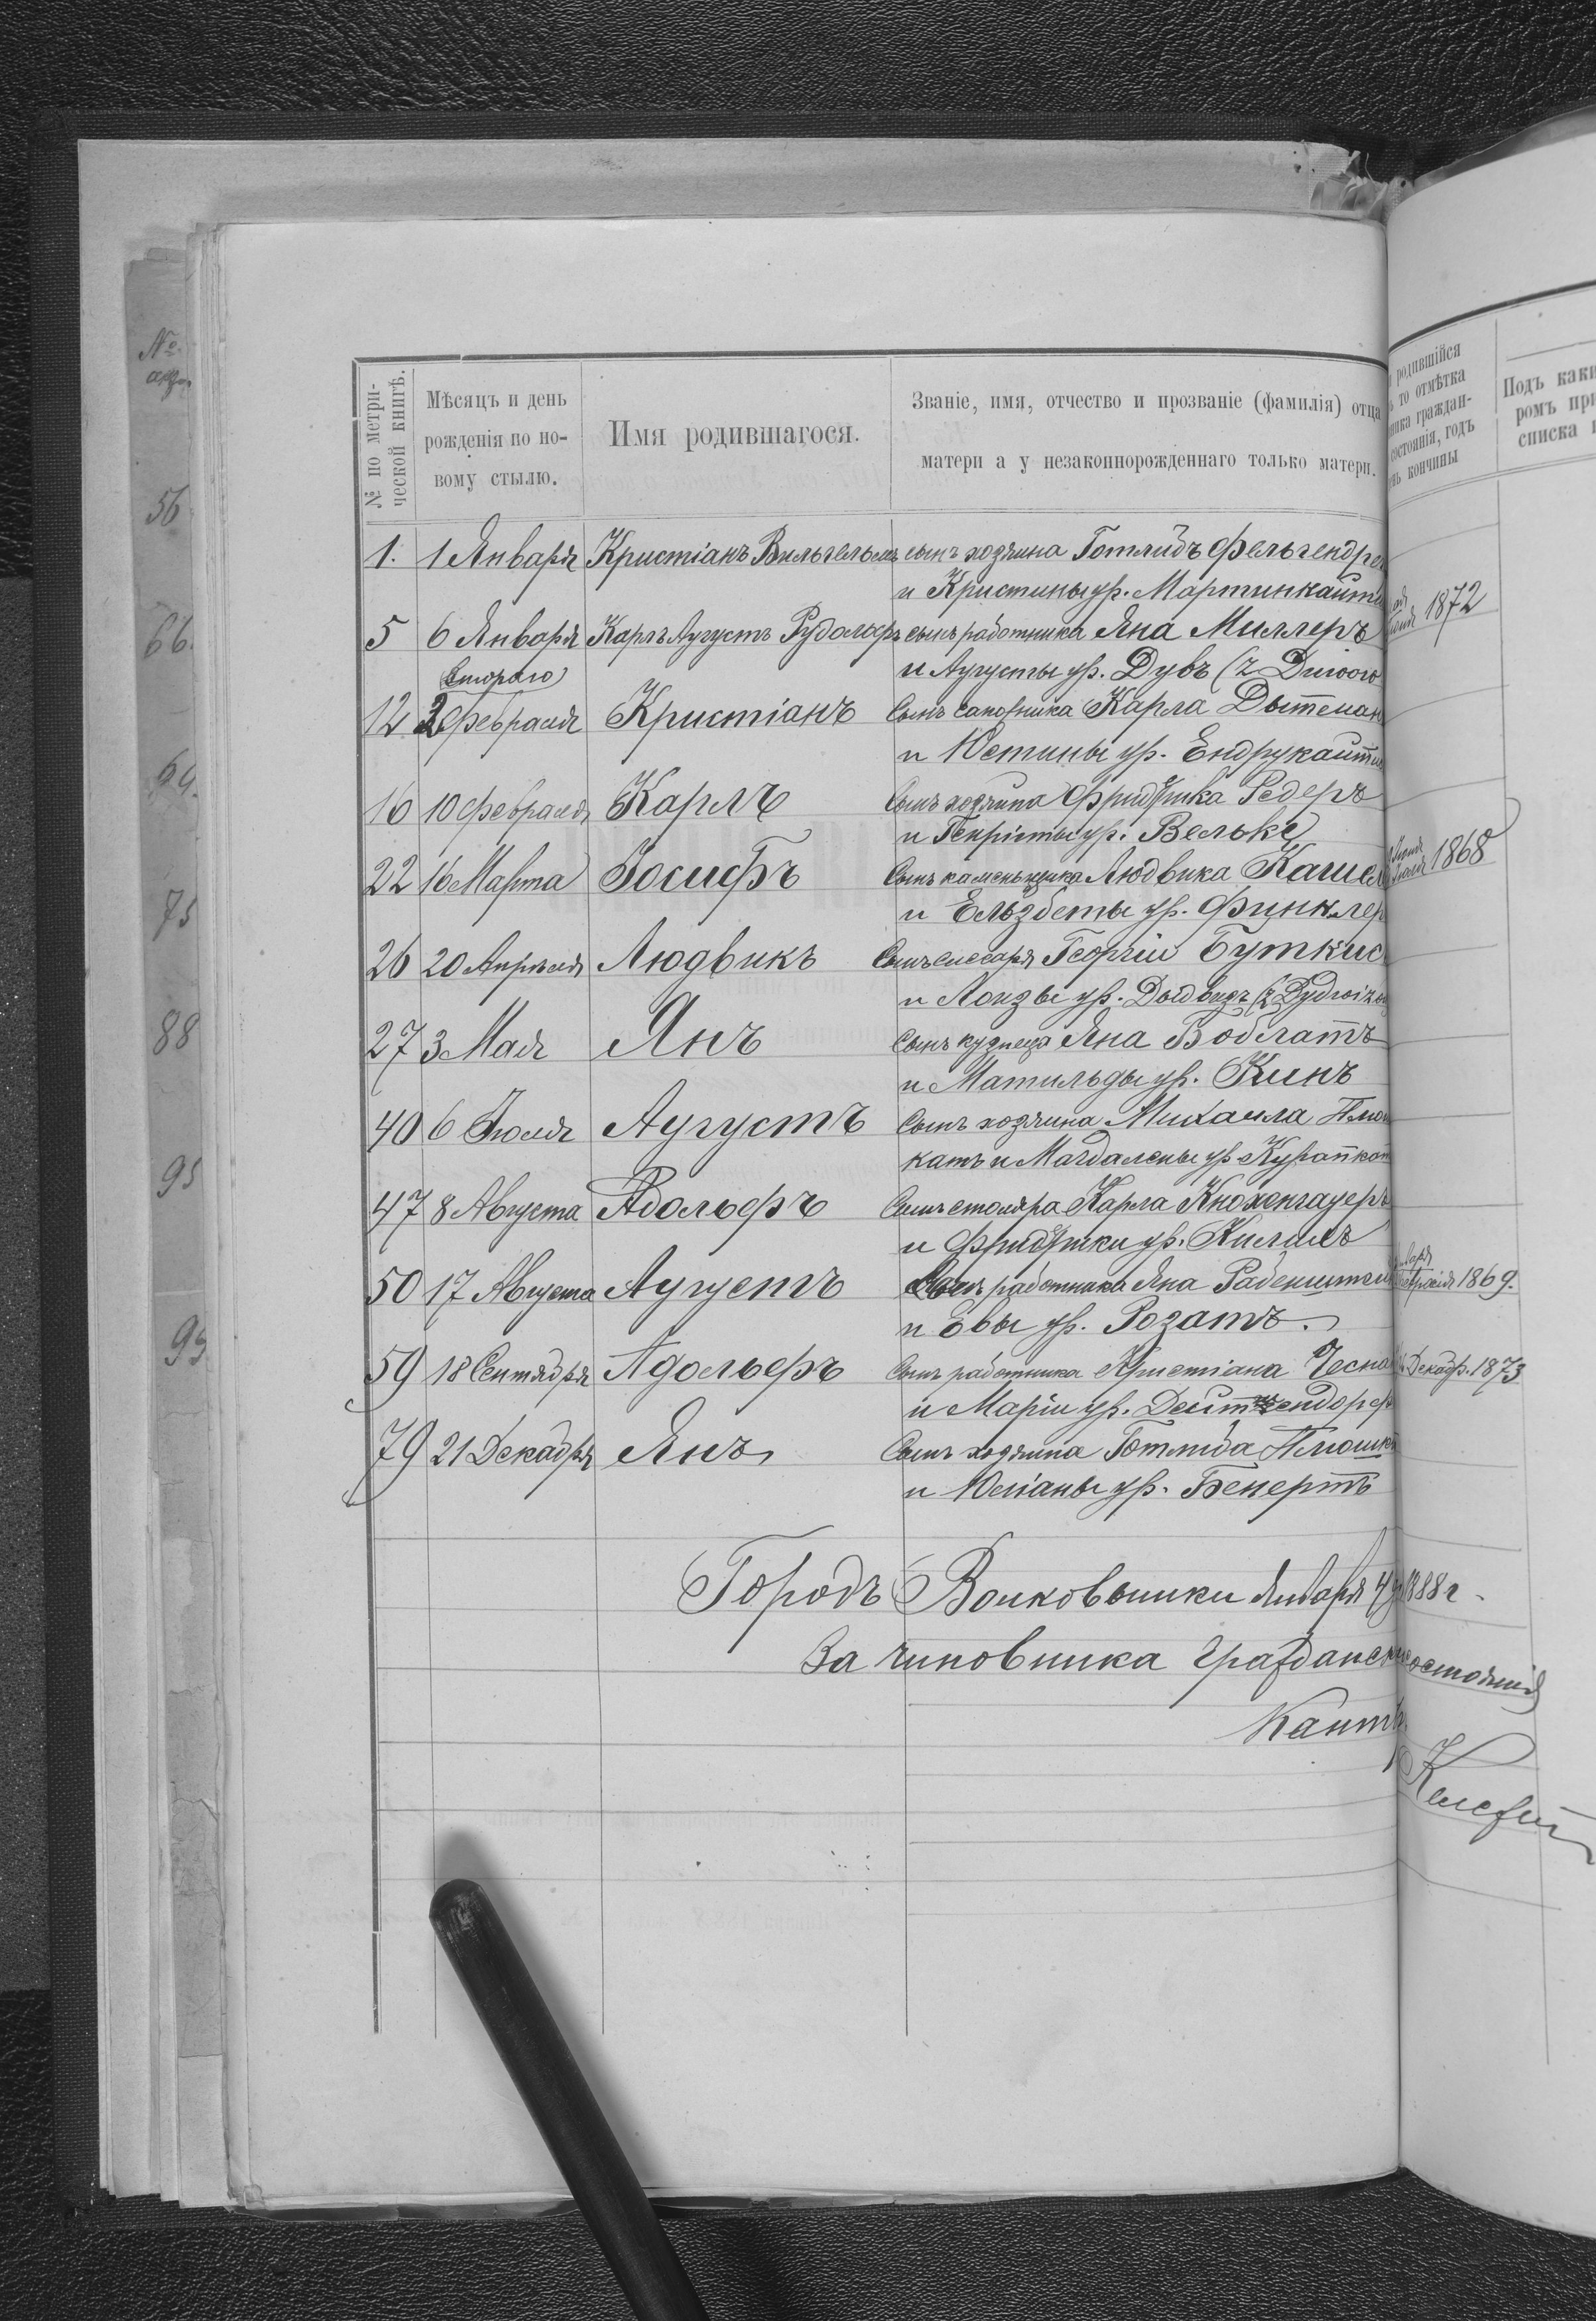 № по метри-
ческой книгѣ.
Мѣсяцъ и день
рожденія по но-
вому стылю.
Имя родившагося.
Званіе, имя, отчество и прозваніе (фамилія) отца
матери а у незаконнорожденнаго только матери.
родившійся
то отмѣтка
граждан-
состоянія, годъ
кончины
Подъ каки
ромъ при
списка
1. 1 Января Кристіанъ Вильгельмъ сынъ хозяина Готлибъ Фельгендре
и Кристины ур. Мартинкайт
1872
5 6 Января Карлъ Аугустъ Рудольфъ сынъ работника Яна Миллеръ
и Аугусты ур. Дувъ (z Duwow
Второго
12 2 Февраля Кристіанъ Сынъ сапожника Карла Дытман
и Юстины ур. Ендрукайт
16 10 Февраля Карлъ Сынъ хозяина Фридрика Редеръ
и Генріеты ур. Вельке
22 16 Марта Іосифъ Сынъ каменьщика Людвика Кашел
1868
и Ельзбеты ур. Финклер
26 20 Апрѣля Людвикъ Сынъ слесаря Георгія Буткис
и Лоизы ур. Довбидъ
27 3 Мая Янъ Сынъ кузнеца Яна Воблатъ
и Матильды ур. Кинъ
40 6 Іюля Аугустъ Сынъ хозяина Михаила Плюш
катъ и Магдалены ур. Курапкат
47 8 Августа Адольфъ Сынъ столяра Карла Кнохенгауеръ
и Фридрики ур. Килилъ
50 17 Августа Аугустъ Сынъ работника Яна Рабенштейн
1869.
и Евы ур. Розатъ.
59 18 Сентября Адольфъ Сынъ работника Кристіана Чесна
Декабр. 1873
и Маріи ур. Дейтшендорф
79 21 Декабря Янъ Сынъ хозяина Готлиба Плюшк
и Юліаны ур. Бенертъ
Городъ Волковышки Января 4 1888 г.
За чиновника гражданск состоянія
Кант
№
56
66.
69.
75
88
95
99